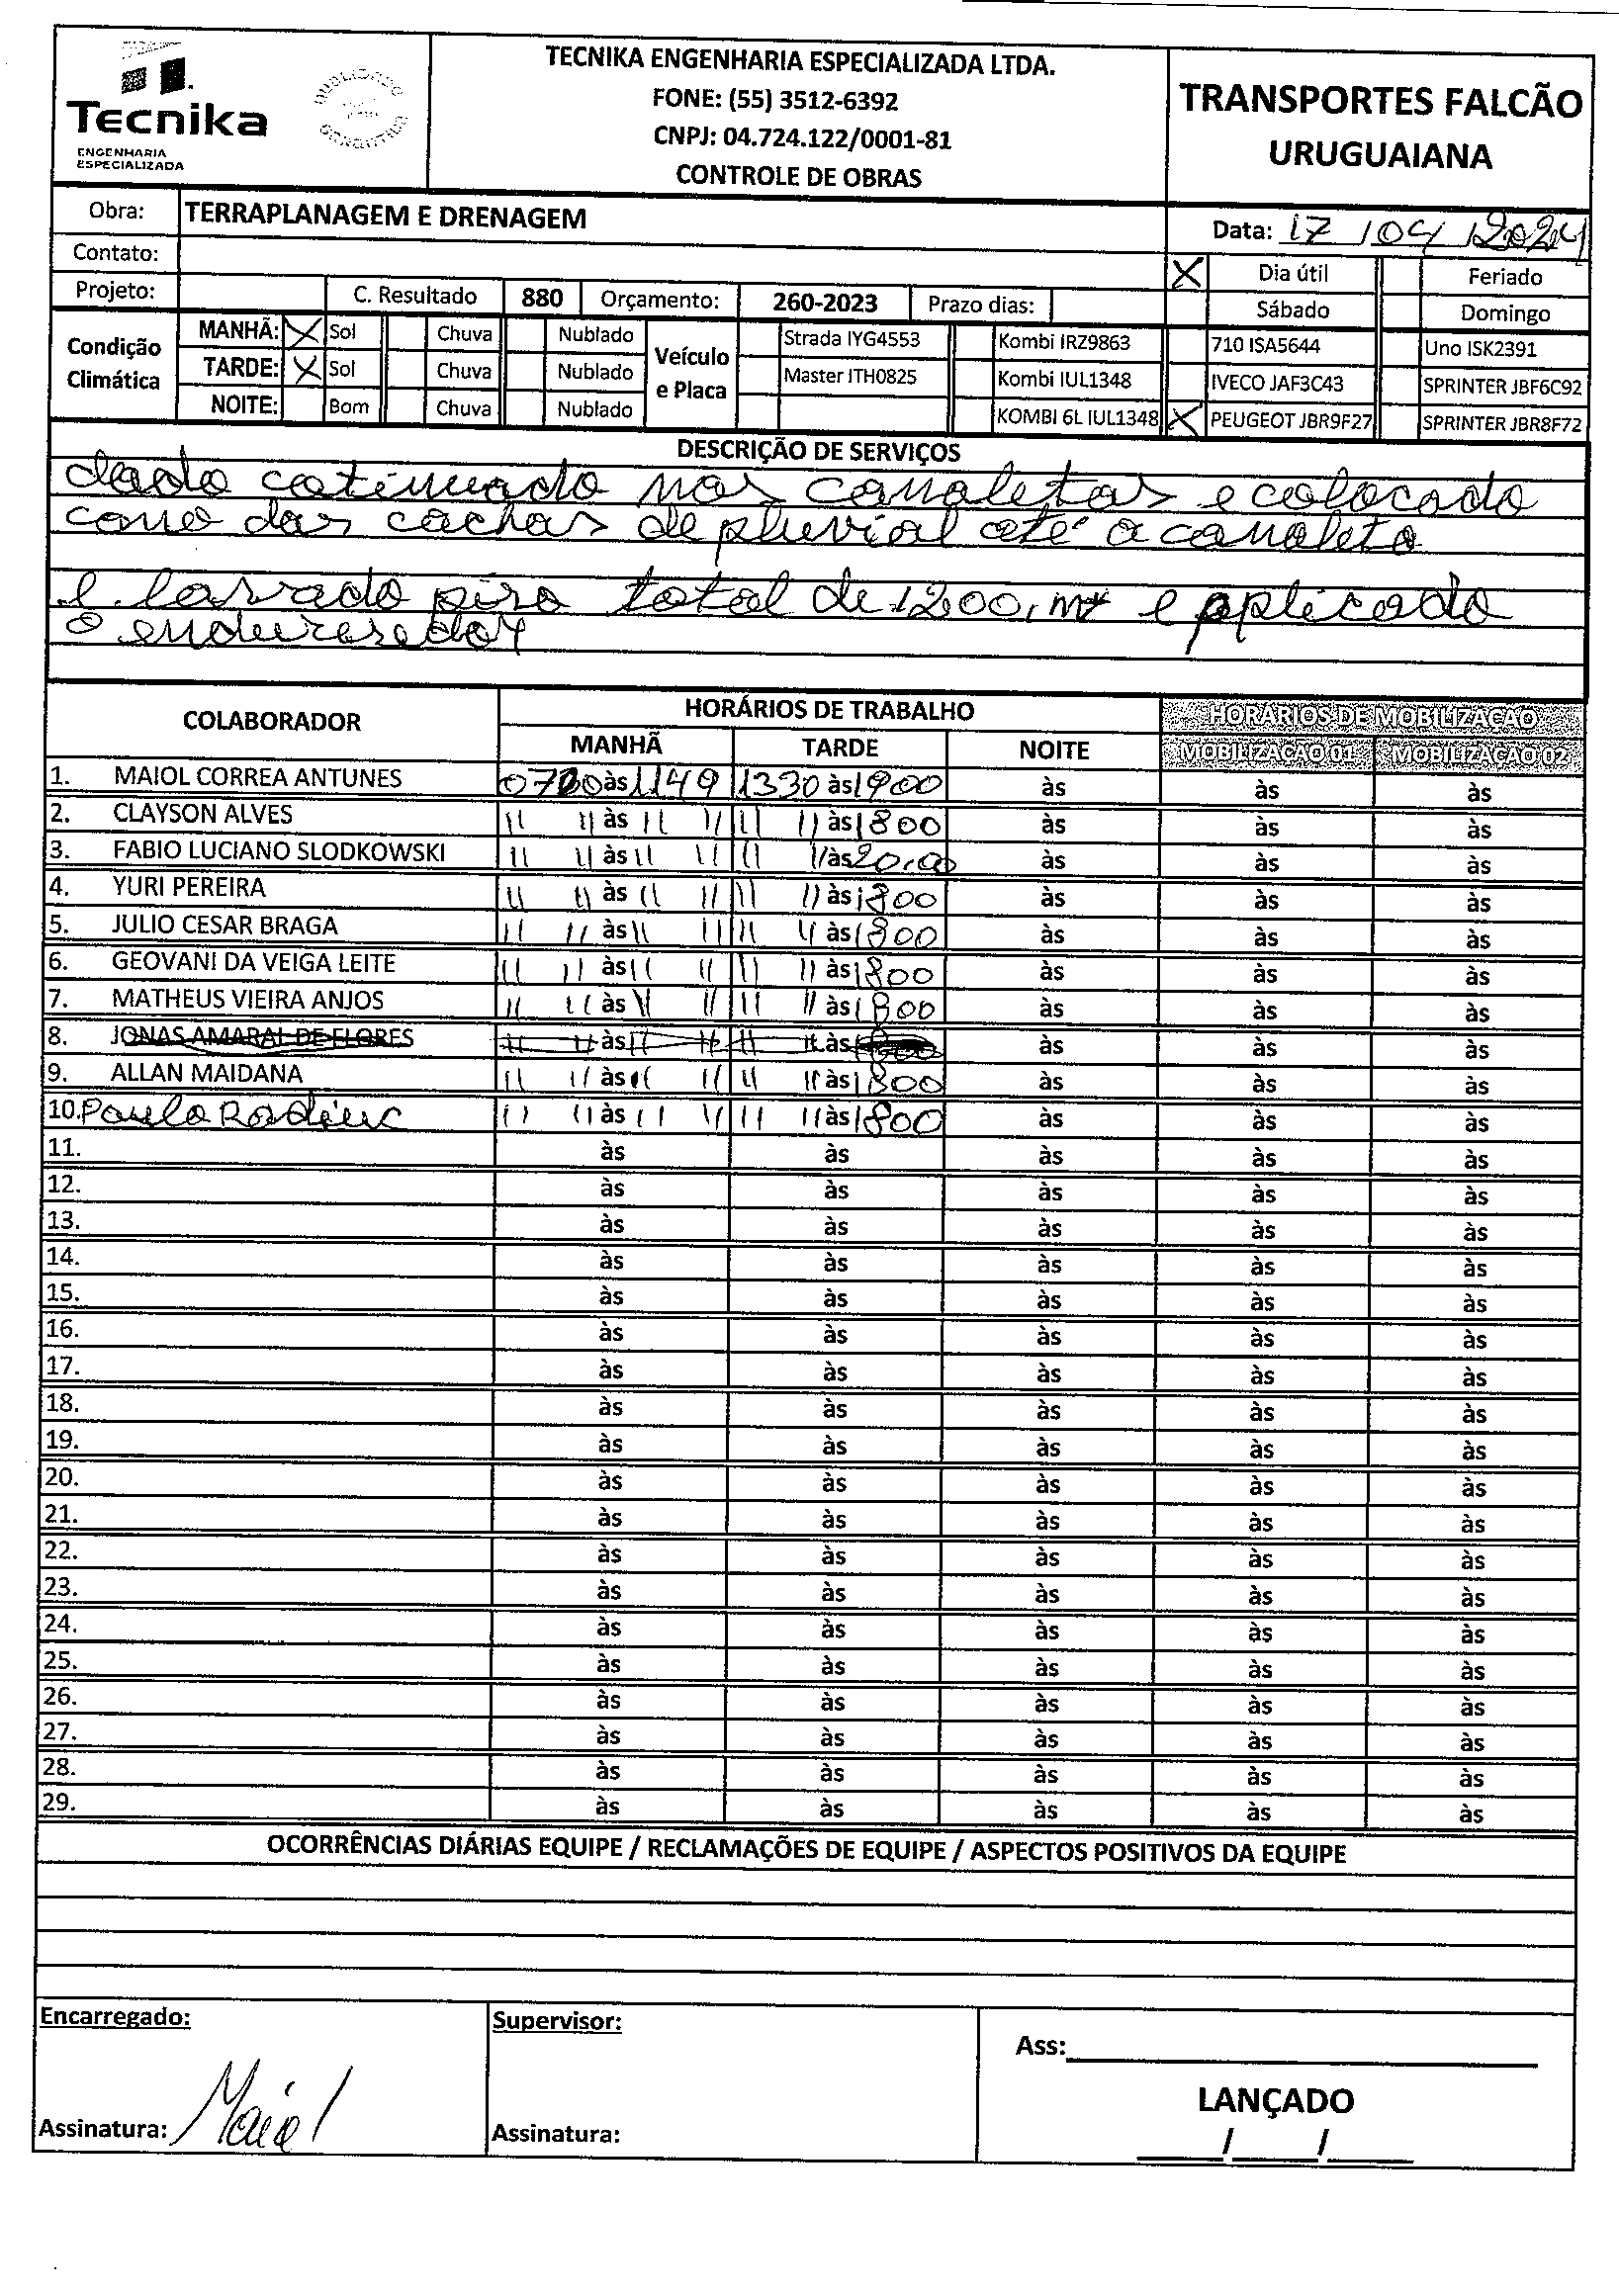 Tecnika
ENGENHARIA
ESPECIALIZADA
TECNIKA ENGENHARIA ESPECIALIZADA LTDA.
FONE: (55) 3512-6392
CNPJ: 04.724.122/0001-81
CONTROLE DE OBRAS
TRANSPORTES FALCÃO
URUGUAIANA
Obra: TERRAPLANAGEM E DRENAGEM
Data: 17 / 04 / 2024
Contato:
X Dia útil Feriado
Projeto: C. Resultado 880 Orçamento: 260-2023 Prazo dias:
Sábado Domingo
Condição Climática
MANHÃ: X Sol Chuva Nublado
TARDE: X Sol Chuva Nublado
NOITE: Bom Chuva Nublado
Veículo e Placa
Strada IYG4553 Kombi IRZ9863 710 ISA5644 Uno ISK2391
Master ITH0825 Kombi IUL1348 IVECO JAF3C43 SPRINTER JBF6C92
KOMBI 6L IUL1348 X PEUGEOT JBR9F27 SPRINTER JBR8F72
DESCRIÇÃO DE SERVIÇOS
dado catinuado nas canaletas e colocado
cano das cachas de pluvial até a canaleta
e lavado piso total de 1200, m² e aplicado
o enduresedor
COLABORADOR HORÁRIOS DE TRABALHO HORÁRIOS DE MOBILIZAÇÃO
MANHÃ TARDE NOITE MOBILIZAÇÃO 01 MOBILIZAÇÃO 02
1. MAIOL CORREA ANTUNES às 1149 1330 às 1900 às às às
2. CLAYSON ALVES " " às " " " " às 1800 às às às
3. FABIO LUCIANO SLODKOWSKI " " às " " " " às 20:00 às às às
4. YURI PEREIRA " " às " " " " às 1800 às às às
5. JULIO CESAR BRAGA " " às " " " " às 1800 às às às
6. GEOVANI DA VEIGA LEITE " " às " " " " às 1800 às às às
7. MATHEUS VIEIRA ANJOS " " às " " " " às 1800 às às às
8. JONAS AMARAL DE FLORES " " às " " " " às às às às
9. ALLAN MAIDANA " " às " " " " às 1800 às às às
10. Paulo " " às " " " " às 1800 às às às
11. às às às às às
12. às às às às às
13. às às às às às
14. às às às às às
15. às às às às às
16. às às às às às
17. às às às às às
18. às às às às às
19. às às às às às
20. às às às às às
21. às às às às às
22. às às às às às
23. às às às às às
24. às às às às às
25. às às às às às
26. às às às às às
27. às às às às às
28. às às às às às
29. às às às às às
OCORRÊNCIAS DIÁRIAS EQUIPE / RECLAMAÇÕES DE EQUIPE / ASPECTOS POSITIVOS DA EQUIPE
Encarregado: Supervisor:
Ass:
LANÇADO
Assinatura: Maiol Assinatura:
/ /